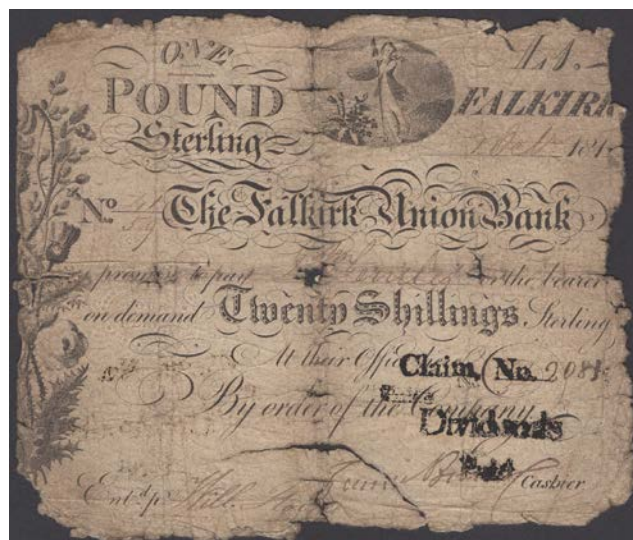 ONE
POUND
Sterling
£1.-
FALKIRK
181
No
The Falkirk Union Bank
promise to pay or the bearer
on demand Twenty Shillings Sterling
At their Office
Claim, No. 2081
By order of the Company
Dividends
Paid
Entd. p. Will.
Cashier